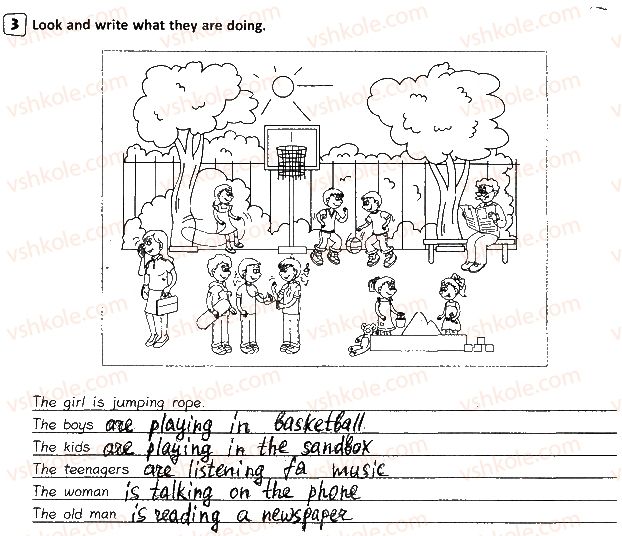 3 Look and write what they are doing.
The girl is jumping rope.
The boys are playing in basketball.
The kids are playing in the sandbox
The teenagers are listening ta music
The woman is talking on the phone
The old man is reading a newspaper
vshkole.com